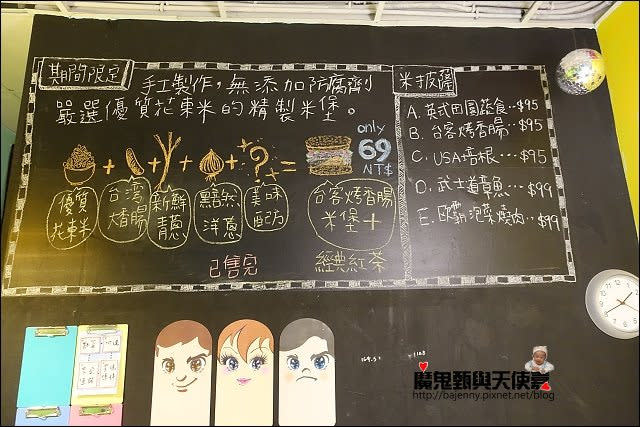 期間限定
手工製作，無添加防腐劑
嚴選優質花東米的精製米堡。
+ + + + =
?
only
69
NT$
優質
花東米
台灣
大香腸
新鮮
青蔥
黯然
洋蔥
美味
配方
台客烤香腸
米堡+
經典紅茶
已售完
米披薩
A. 英式田園蔬食..$95
B. 台客烤香腸...$95
C. USA培根...$95
D. 武士道章魚...$99
E. 歐霸泡菜燒肉..$99
魔鬼甄與天使嘉
http://bajenny.pixnet.net/blog